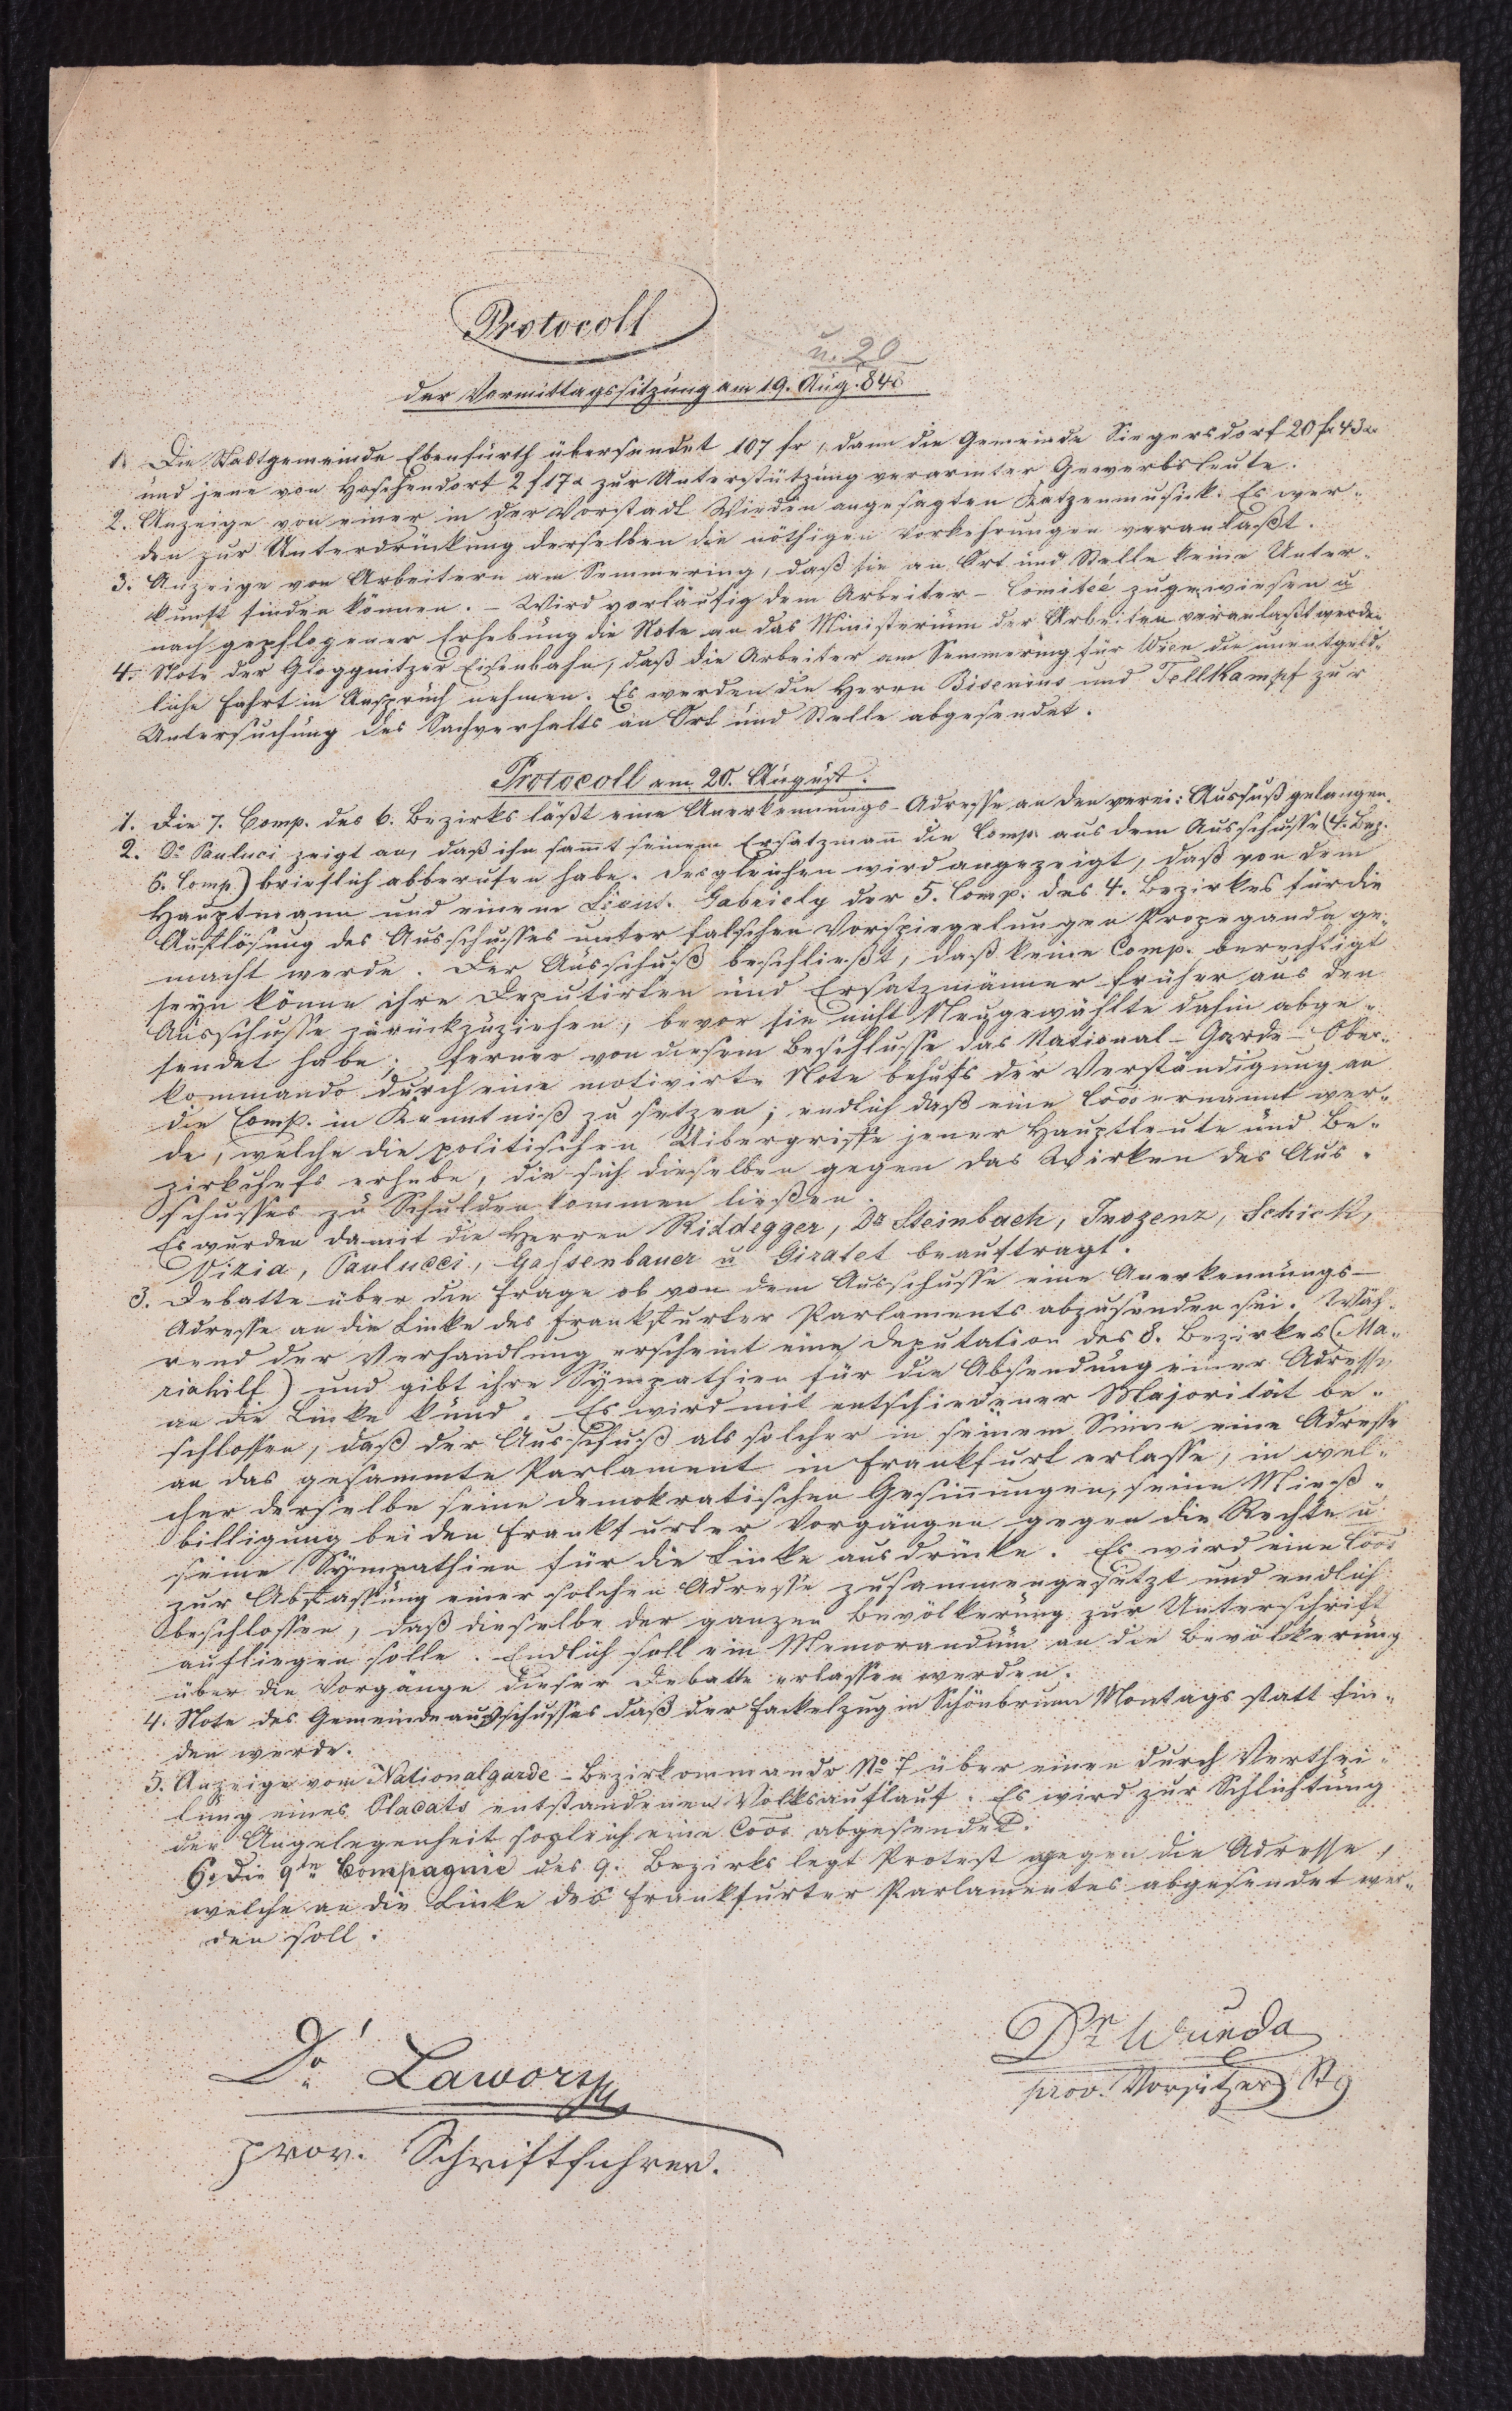 Protocoll
u. 20
der Vormittagssitzung am 19. Aug. 848
1. Die Stadtgemeinde Ebenfürth übersendet 107 fr, dann die Gemeinde Siegersdorf 20 fr 43 x
und jene von Hoschendorf 2 f 17 x zur Unterstützung verarmter Gewerbsleute.
2. Anzeige von einer in der Vorstadt Wieden angesagten Katzenmusick. Es wer-
den zur Unterdrückung derselben die nöthigen Vorkehrungen veranlaßt.
3. Anzeige von Arbeitern am Semmering, daß sie an Ort und Stelle keine Unter-
kunft finden können. – Wird vorläufig dem Arbeiter-Comiteé zugewiesen u
nach gepflogener Erhebung die Note an das Ministerium der Arbeiten veranlaßt werden.
4. Note der Gloggnitzer Eisenbahn, daß die Arbeiter am Semmering für Wien die unentgeld-
liche Fahrt in Anspruch nehmen. Es werden die Herrn Bisenius und Tellkampf zur
Untersuchung des Sachverhalts an Ort und Stelle abgesendet.
Protocoll am 20. August.
1. Die 7. Comp. des 6. Bezirks läßt eine Anerkennungs-Adresse an den verei: Ausschuß gelangen.
2. Dr Pauluci zeigt an, daß ihn sammt seinem Ersatzmann die Comp. aus dem Ausschusse (4. Bez.
6. Comp.) brieflich abberufen habe. Desgleichen wird angezeigt, daß von dem
Hauptmann und einem Lieut. Gabriely der 5. Comp. des 4. Bezirkes für die
Auflösung des Ausschusses unter falschen Vorspiegelungen Propeganda ge-
macht werde. Der Ausschuß beschließt, daß keine Comp. berechtigt
seyn könne ihre Deputirten und Ersatzmänner früher aus den
Ausschusse zurückzuziehen, bevor sie nicht Neugewählte dahin abge-
sendet habe; ferner von diesem Beschlusse das National-Garde-Ober-
kommando durch eine motivirte Note behufs der Verständigung an
die Comp. in Kenntniß zu setzen; endlich daß eine Coon ernannt wer-
de, welche die politischen Uibergriffe jener Hauptleute und Be-
zirkchefs erhebe, die sich dieselben gegen das Wirken des Aus-
schusses zu Schulden kommen ließen.
Es wurden damit die Herren Riddegger, Dr Steinbach, Inozenz, Schick,
Vizia, Paulucci, Gassenbauer u Giratet beauftragt.
3. Debatte über die Frage ob von dem Ausschusse eine Anerkennungs-
Adresse an die Linke des Frankfurter Parlaments abzusenden sei. Wäh-
rend der Verhandlung erscheint eine Deputation des 8. Bezirkes (Ma-
riahilf) und gibt ihre Sympathien für die Absendung einer Adresse
an die Linke kund. Es wird mit entschiedener Majorität be-
schlossen, daß der Ausschuß als solcher in seinem Sinne eine Adresse
an das gesammte Parlament in Frankfurt erlasse, in wel-
cher derselbe seine demokratischen Gesinnungen, seine Mieß-
billigung bei den Frankfurter Vorgängen gegen die Rechte u
seine Sympathien für die Linke ausdrücke. Es wird eine Coon
zur Abfassung einer solchen Adresse zusammengesetzt und endlich
beschlossen, daß dieselbe der ganzen Bevölkerung zur Unterschrift
aufliegen solle. Endlich soll ein Memorandum an die Bevölkerung
über die Vorgänge dieser Debatte erlassen werden.
4. Note des Gemeindeausschusses daß der Fackelzug in Schönbrunn Montags statt fin-
den werde.
5. Anzeige vom Nationalgarde-Bezirkommando No 7 über einen durch Verthei-
lung eines Placats entstandenen Volksauflauf. Es wird zur Schlichtung
der Angelegenheit sogleich eine Coon abgesendet.
6. Die 9te Compagnie des 9. Bezirks legt Protest gegen die Adresse,
welche an die Linke des Frankfurter Parlamentes abgesendet wer-
den soll.
Dr Wunda
prov. Vorsitzer
Dr Lawory
prov. Schriftführer.